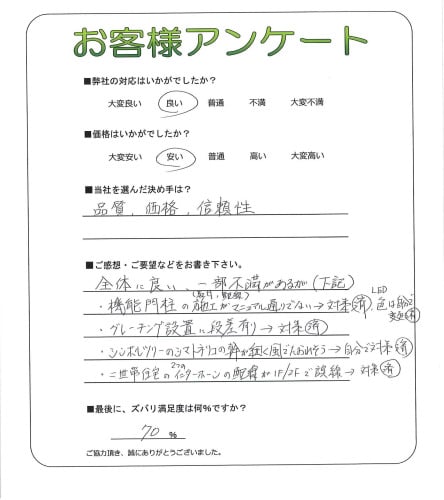 お客様アンケート
■弊社の対応はいかがでしたか?
大変良い 良い 普通 不満 大変不満
■価格はいかがでしたか?
大変安い 安い 普通 高い 大変高い
■当社を選んだ決め手は?
品質、価格、信頼性
■ご感想・ご要望などをお書き下さい。
全体に良い、一部不満があるが(下記)
・機能門柱の施工がマニュアル通りでない→対策済 LED色は自分で
・グレーチング設置に段差有り→対策済
・シンボルツリーのシマトネリコの幹が細く風でたおれそう→自分で対策済
・二世帯住宅の2つのインターホーンの配線が1F/2Fで誤線→対策済
■最後に、ズバリ満足度は何%ですか?
70 %
ご協力頂き、誠にありがとうございました。